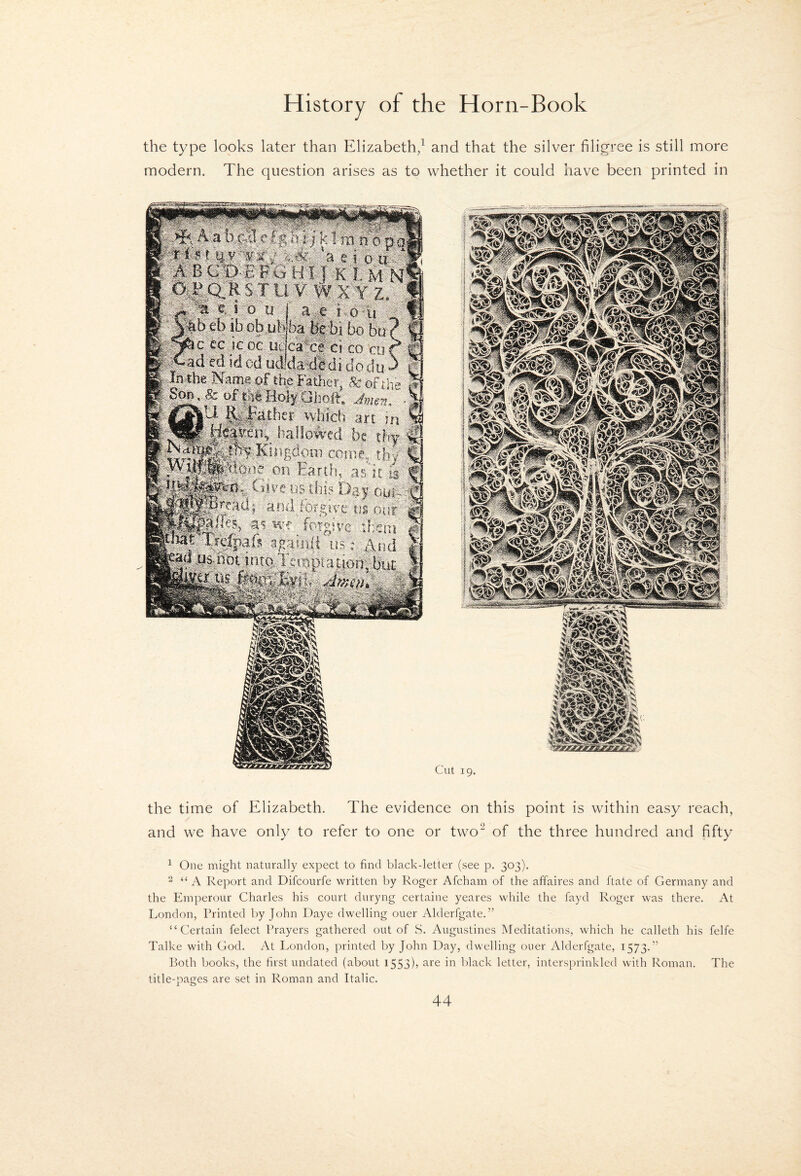 History of the Horn-Book
the type looks later than Elizabeth,¹ and that the silver filigree is still more
modern. The question arises as to whether it could have been printed in
✠ A a b c d e f g h i j k l m n o p q
r ſ s t u v w x y z & a e i o u
A B C D E F G H I J K L M N
O P Q R S T U V W X Y Z.
a e i o u | a e i o u
ab eb ib ob ub | ba be bi bo bu
ac ec ic oc uc | ca ce ci co cu
ad ed id od ud | da de di do du
In the Name of the Father, & of the
Son, & of the Holy Ghoſt. Amen.
OU R Father which art in
Heaven, hallowed be thy
Name, thy Kingdom come, thy
Will be done on Earth, as it is
in Heaven. Give us this Day our
Bread; and forgive us our
Treſpaſſes, as we forgive them
that Treſpaſs againſt us: And
lead us not into Temptation, but
deliver us from Evil. Amen.
Cut 19.
the time of Elizabeth. The evidence on this point is within easy reach,
and we have only to refer to one or two² of the three hundred and fifty
¹ One might naturally expect to find black-letter (see p. 303).
² “A Report and Difcourfe written by Roger Afcham of the affaires and ftate of Germany and
the Emperour Charles his court duryng certaine yeares while the fayd Roger was there. At
London, Printed by John Daye dwelling ouer Alderfgate.”
“Certain felect Prayers gathered out of S. Augustines Meditations, which he calleth his felfe
Talke with God. At London, printed by John Day, dwelling ouer Alderfgate, 1573.”
Both books, the first undated (about 1553), are in black letter, intersprinkled with Roman. The
title-pages are set in Roman and Italic.
44